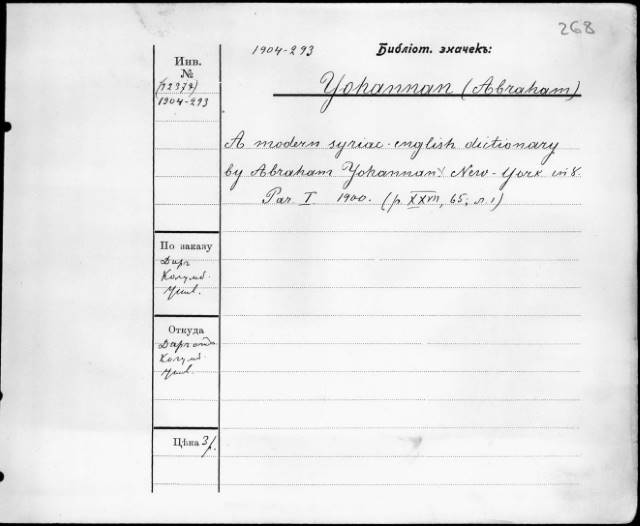 268
1904-293 Библіот. значекъ:
Инв.
№
(12374)
1904-293
Yohannan (Abraham)
A modern syriac-english dictionary
by Abraham Yohannan. New-York in 8.
Par. I 1900. (p. XXVII, 65; л. 1)
По заказу
Даръ
Колумб.
Унив.
Откуда
Даръ отъ
Колумб.
Унив.
Цѣна 3 р.